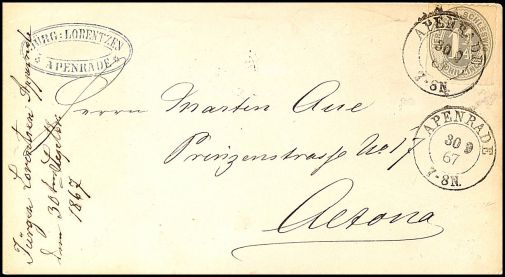 JÜRG: LORENTZEN
APENRADE
Herrn Marten Aue
Prinzenstrasse No 17
Altona
Jürgen Lorentzen Apenrade
dem 30ten
1867
SCHLESW
1
SCHILLING
APENRADE
30 9
7-8N.
APENRADE
30 9
67
7-8N.